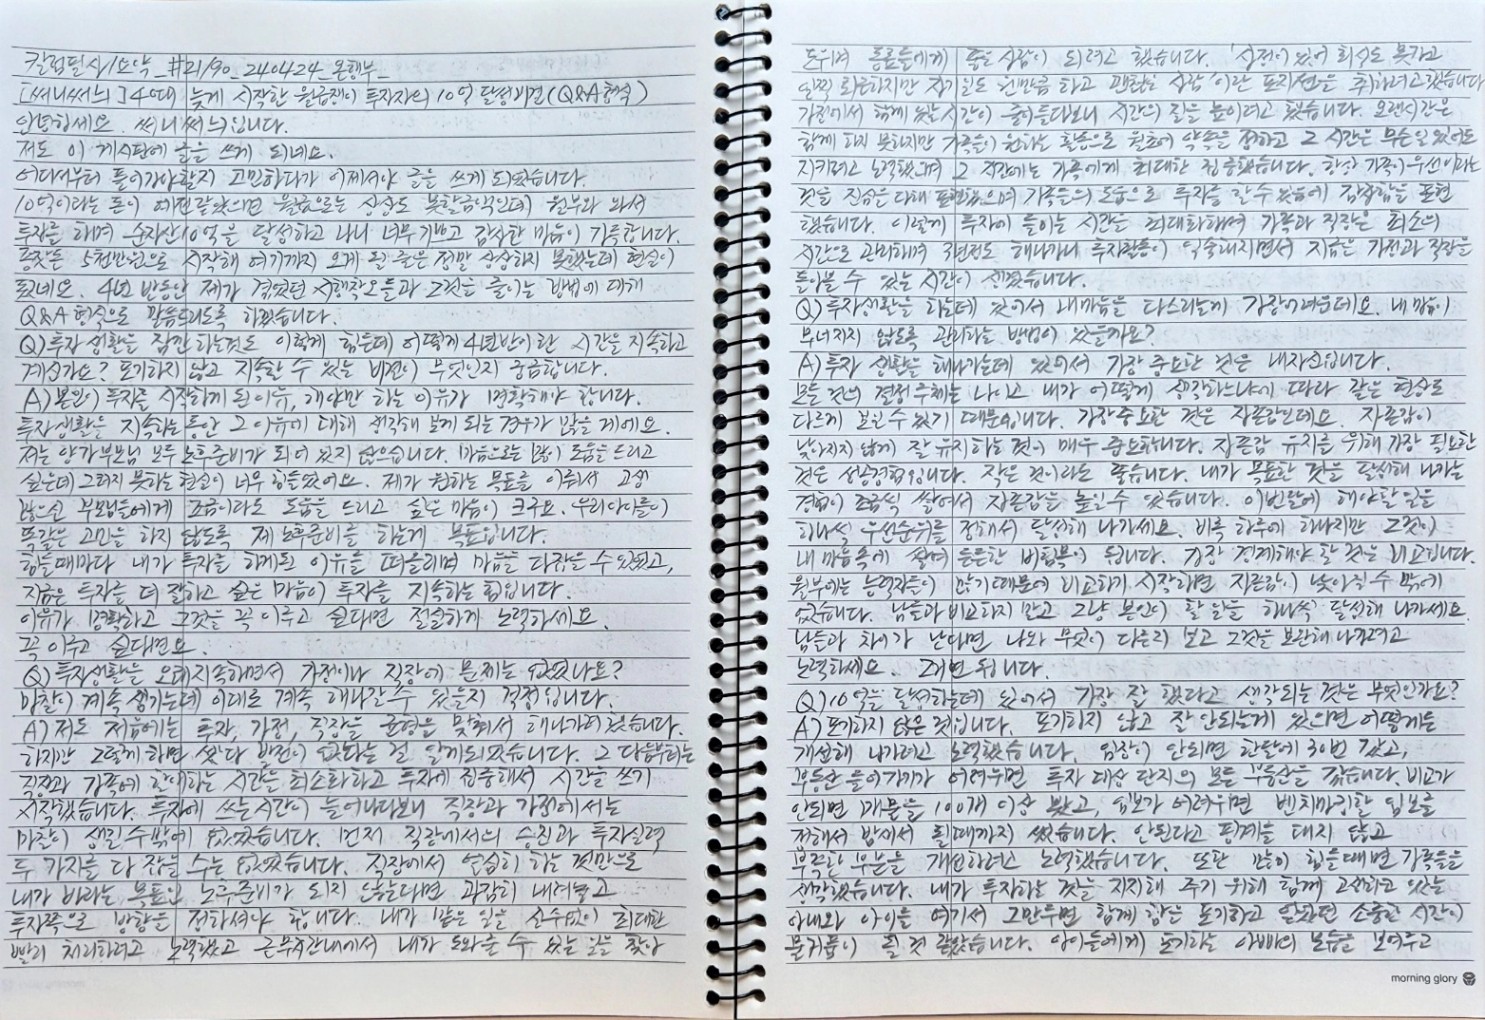 칼럼필사/요약_#21/90_240424_온해누_
[써니써늬] 40대 늦게 시작한 월급쟁이 투자자의 10억 달성비결(Q&A형식)
안녕하세요. 써니써늬입니다.
저도 이 게시판에 글을 쓰게 되네요.
어디서부터 들어가야할지 고민하다가 이제서야 글을 쓰게 되었습니다.
10억이라는 돈이 예전같았으면 월급으로는 상상도 못할금액인데 월부와 와서
투자를 하며 순자산10억을 달성하고 나니 너무 기쁘고 감사한 마음이 가득합니다.
종잣돈 5천만원으로 시작해 여기까지 오게 될 줄은 정말 상상하지 못했는데 현실이
됐네요. 4년 반동안 제가 겪었던 시행착오들과 그것을 줄이는 방법에 대해
Q&A 형식으로 말씀드리도록 하겠습니다.
Q) 투자 생활을 잠깐 하는것도 이렇게 힘든데 어떻게 4년반이란 시간을 지속하고
계신가요? 포기하지 않고 지속할 수 있는 비결이 무엇인지 궁금합니다.
A) 본인이 투자를 시작하게 된 이유, 해야만 하는 이유가 명확해야 합니다.
투자생활을 지속하는 동안 그 이유에 대해 생각해 보게 되는 경우가 많을 거에요.
저는 양가부모님 모두 노후준비가 되어 있지 않으십니다. 마음으로는 많이 도움을 드리고
싶은데 그러지 못하는 현실이 너무 힘들었어요. 제가 원하는 목표를 이뤄서 고생
많으신 부모님들에게 조금이라도 도움을 드리고 싶은 마음이 크구요. 우리아이들이
똑같은 고민을 하지 않도록 제 노후준비를 하는게 목표입니다.
힘들때마다 내가 투자를 하게된 이유를 떠올리며 마음을 다잡을 수 있었고,
지금은 투자를 더 잘하고 싶은 마음이 투자를 지속하는 힘입니다.
이유가 명확하고 그것을 꼭 이루고 싶다면 절실하게 노력하세요.
꼭 이루고 싶다면요.
Q) 투자생활을 오래지속하면서 가정이나 직장에 문제는 없었나요?
마찰이 계속 생기는데 이대로 계속 해나갈수 있을지 걱정입니다.
A) 저도 처음에는 투자, 가정, 직장을 균형을 맞춰서 해나가려 했습니다.
하지만 그렇게 하면 셋 다 발전이 없다는 걸 알게되었습니다. 그 다음부터는
직장과 가족에 할애하는 시간을 최소화하고 투자에 집중해서 시간을 쓰기
시작했습니다. 투자에 쓰는시간이 늘어나다보니 직장과 가정에서는
마찰이 생길 수밖에 없었습니다. 먼저 직장에서의 승진과 투자실력
두 가지를 다 잡을 수는 없었습니다. 직장에서 열심히 하는 것만으로
내가 바라는 목표인 노후준비가 되지 않는다면 과감히 내려놓고
투자쪽으로 방향을 정하셔야 합니다. 내가 맡은 일을 실수없이 최대한
빨리 처리하려고 노력했고 근무시간내에서 내가 도와줄 수 있는 일을 찾아
도우며 동료들에게 좋은 사람이 되려고 했습니다. '실전이 있어 회식도 못가고
일찍 퇴근하지만 자기 일도 원만큼 하고 괜찮은 사람'이란 포지션을 취하려고 했습니다
가정에서 함께 있는 시간이 줄어들다보니 시간의 질을 높이려고 했습니다. 오랜시간은
함께 하지 못하지만 가족들이 원하는 활동으로 월초에 약속을 정하고 그 시간은 무슨일 있어도
지키려고 노력했으며 그 시간에는 가족에게 최대한 집중했습니다. 항상 가족이 우선이라는
것을 진심을 다해 표현했으며 가족들의 도움으로 투자를 할 수 있음에 감사함을 표현
했습니다. 이렇게 투자에 들이는 시간을 최대화하며 가족과 직장은 최소의
시간으로 관리하며 3년정도 해나가니 투자활동이 익숙해지면서 지금은 가정과 직장을
돌아볼 수 있는 시간이 생겼습니다.
Q) 투자생활을 하는데 있어서 내마음을 다스리는게 가장어려운데요. 내 맘이
무너지지 않도록 관리하는 방법이 있을까요?
A) 투자 생활을 해나가는데 있어서 가장 중요한 것은 내자신입니다.
모든 것의 결정 주체는 나이고 내가 어떻게 생각하느냐에 따라 같은 현상도
다르게 보일 수 있기 때문입니다. 가장중요한 것은 자존감인데요. 자존감이
낮아지지 않게 잘 유지하는 것이 매우 중요합니다. 자존감 유지를 위해 가장 필요한
것은 성공경험입니다. 작은 것이라도 좋습니다. 내가 목표한 것을 달성해 나가는
경험이 조금씩 쌓여서 자존감을 높일 수 있습니다. 이번달에 해야할 일을
하나씩 우선순위를 정해서 달성해 나가세요. 비록 하루에 하나지만 그것이
내 마음속에 쌓여 든든한 버팀목이 됩니다. 가장 경계해야 할 것은 비교입니다.
월부에는 능력자들이 많기 때문에 비교하기 시작하면 자존감이 낮아질 수 밖에
없습니다. 남들과 비교하지 말고 그냥 본인이 할 일을 하나씩 달성해 나가세요.
남들과 차이가 난다면 나와 무엇이 다른지 보고 그것을 보완해나가려고
노력하세요. 그러면 됩니다.
Q) 10억을 달성하는데 있어서 가장 잘 했다고 생각되는 것은 무엇인가요?
A) 포기하지 않은 것입니다. 포기하지 않고 잘 안되는게 있으면 어떻게든
개선해 나가려고 노력했습니다. 임장이 안되면 한달에 30번 갔고,
부동산 들어가기가 어려우면 투자 대상 단지의 모든 부동산을 갔습니다. 비교가
안되면 매물을 100개 이상 봤고, 임보가 어려우면 벤치마킹할 임보를
정해서 밤새서 될때까지 썼습니다. 안된다고 핑계를 대지 않고
부족한 부분을 개선하려고 노력했습니다. 또한 많이 힘들때면 가족들을
생각했습니다. 내가 투자하는 것을 지지해 주기 위해 함께 고생하고 있는
아내와 아이들 여기서 그만두면 함께 참은 포기하고 인내한 소중한 시간이
물거품이 될 것 같았습니다. 아이들에게 포기하는 아빠의 모습을 보여주고
morning glory